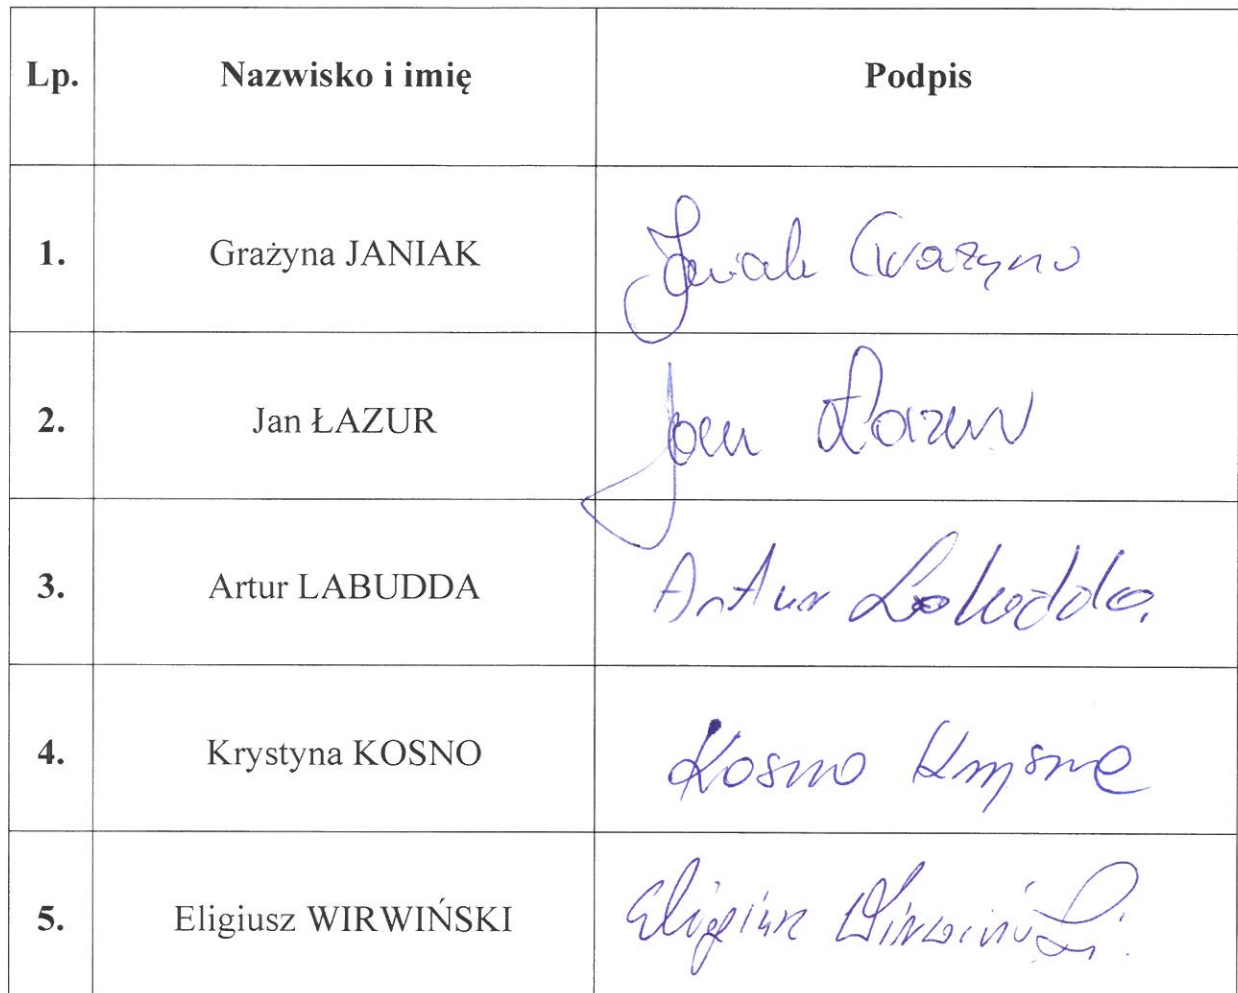 Lp. Nazwisko i imię Podpis
1. Grażyna JANIAK Janiak Grażyna
2. Jan ŁAZUR Jan Łazur
3. Artur LABUDDA Artur Labudda
4. Krystyna KOSNO Kosno Krystyna
5. Eligiusz WIRWIŃSKI Eligiusz Wirwiński